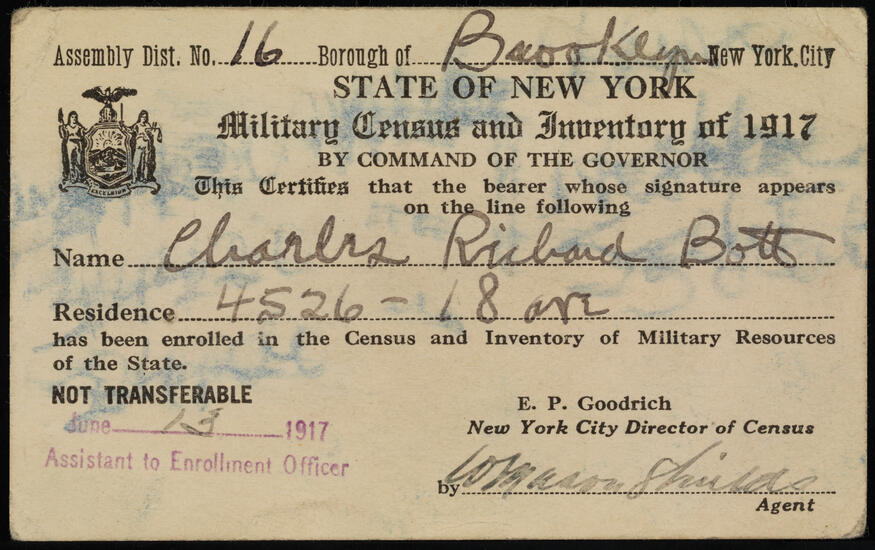 Assembly Dist. No. 16 Borough of Brooklyn New York City
STATE OF NEW YORK
Military Census and Inventory of 1917
BY COMMAND OF THE GOVERNOR
EXCELSIOR
This Certifies that the bearer whose signature appears
on the line following
Name Charles Richard Bott
Residence 4526 - 18 ave
has been enrolled in the Census and Inventory of Military Resources
of the State.
NOT TRANSFERABLE
June 13 1917
Assistant to Enrollment Officer
E. P. Goodrich
New York City Director of Census
by W Mason Shields
Agent